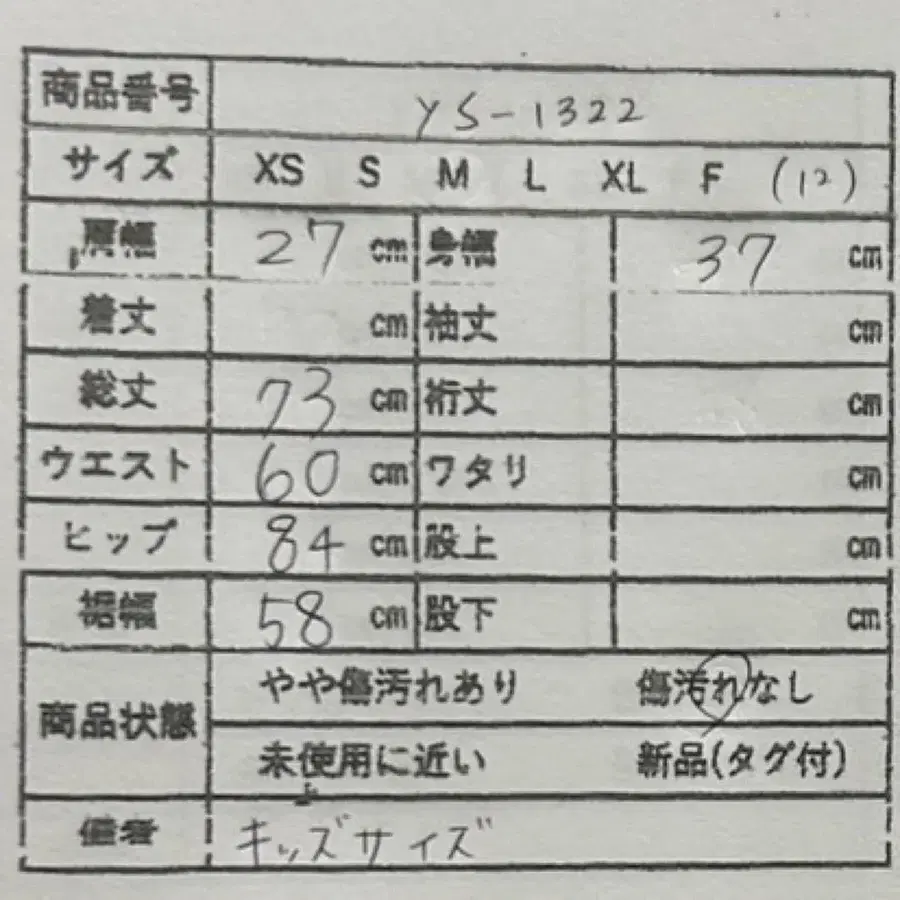 商品番号 YS-1322
サイズ XS S M L XL F (12)
肩幅 27 cm 身幅 37 cm
着丈 cm 袖丈 cm
総丈 73 cm 裄丈 cm
ウエスト 60 cm ワタリ cm
ヒップ 84 cm 股上 cm
裾幅 58 cm 股下 cm
商品状態 やや傷汚れあり 傷汚れなし
未使用に近い 新品(タグ付)
備考 キッズサイズ